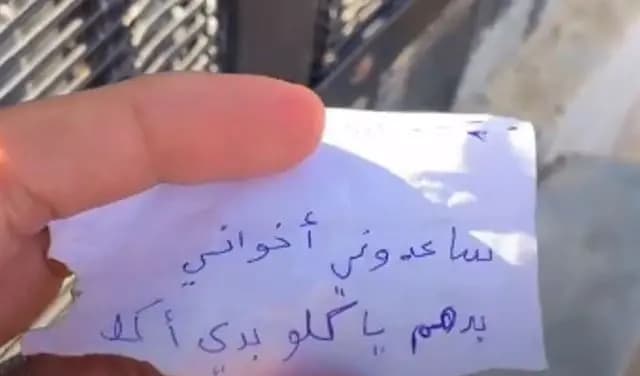 ساعدوني أخواتي
بدهم ياكلو بدي أكل